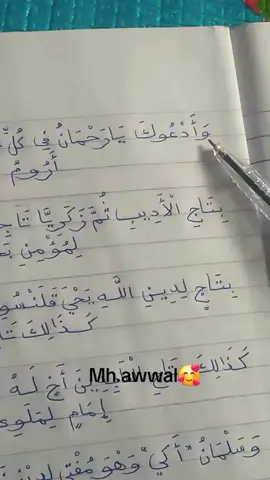 وَأَدْعُوكَ يَارَحْمَانُ فِي كُلِّ
أَرُومُ
بِتَاجِ الْأَدِيبِ ثُمَّ زَكَرِيَّا تَاجِ
لِمُؤْمِنٍ
بِتَاجٍ لِدِينِ اللَّهِ يَحْيَ
كَذَالِكَ
Mh.awwal🥰
كَذَالِكَ
لَهُ
إِمَامٍ
وَسَلْمَانُ أَكِي وَهْوَ مُفْتِي